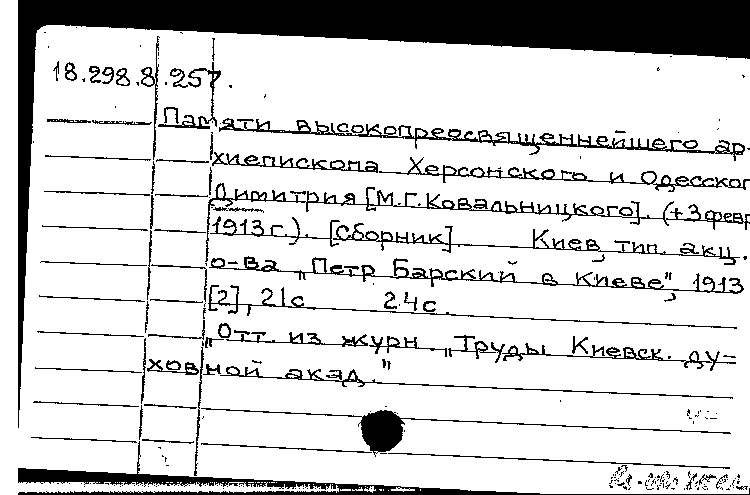 18.298.8.257.
Памяти высокопреосвященнейшего ар-
хиепископа Херсонского и Одесског
Димитрия [М.Г.Ковальницкого]. (+3 февр
1913 г.). [Сборник]. Киев, тип. акц.
о-ва "Петр Барский в Киеве", 1913
[2], 21с 24с.
"Отт. из журн. "Труды Киевск. ду-
ховной акад."